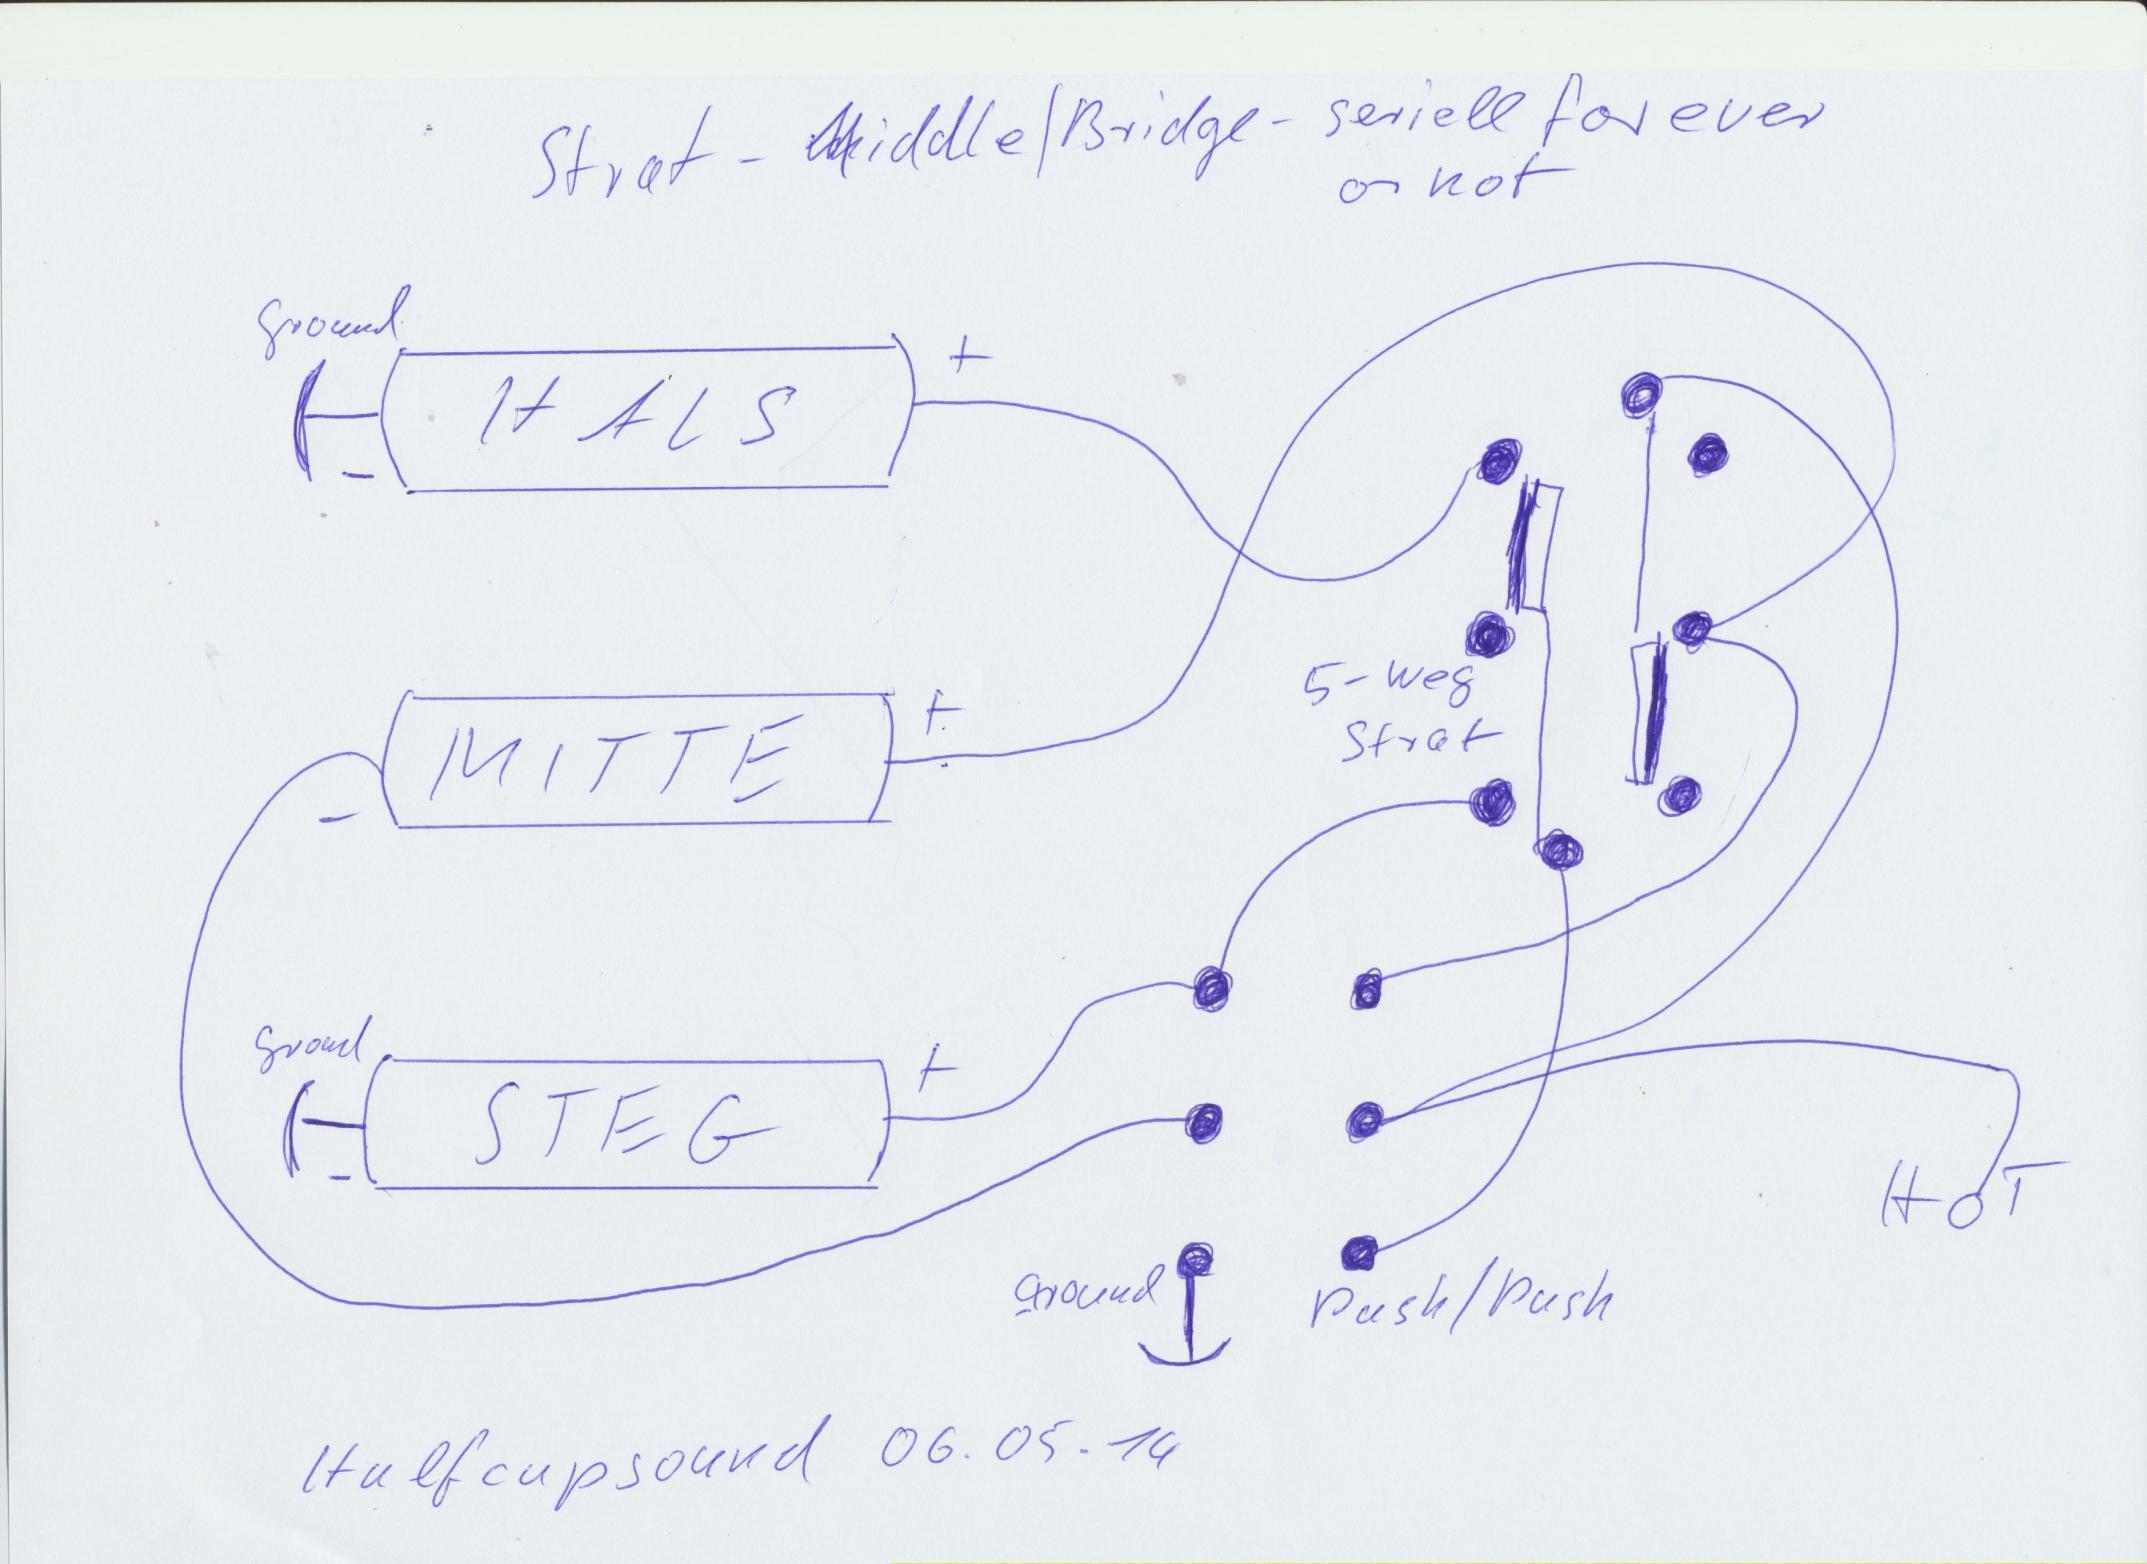 Strat - Middle/Bridge - seriell forever
or not
ground
+
HALS
-
+
MITTE
-
5-Weg
Strat
ground
+
STEG
-
HOT
ground
Push/Push
Halfcupsound 06.05.14